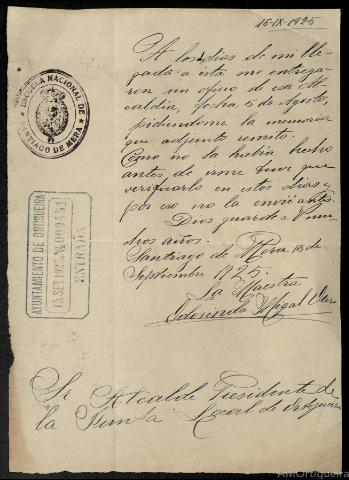 15-IX-1925
A los días de mi lle-
gada a esta me entrega-
ron un oficio de esa Al-
caldía, fecha 5 de Agosto,
pidiendome la memoria
que adjunto remito.
Como no la había hecho
antes de irme tuve que
verificarlo en estos días y
por eso no la envié antes.
Dios guarde a V. mu-
chos años.
Santiago de Mera 15 de
Septiembre 1925.
La Maestra
ESCUELA NACIONAL DE
SANTIAGO DE MERA
AYUNTAMIENTO DE ORTIGUEIRA
15.SET.1925
ENTRADA
Sr. Alcalde Presidente de
la Junta Local de Ortigueira
AMOrtigueira